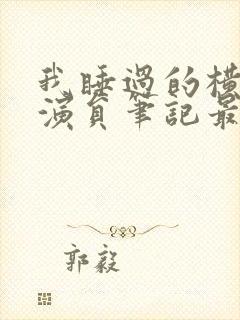 我睡過的橫
演員筆記最
郭毅